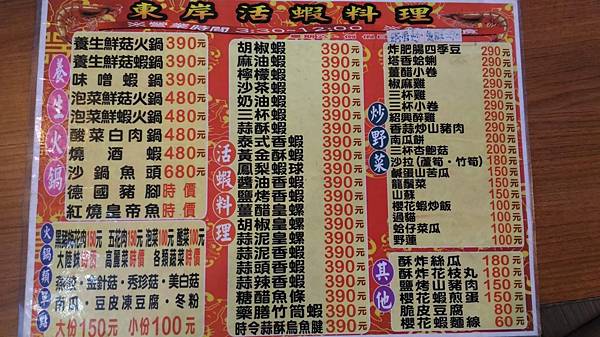 東岸活蝦料理
養生火鍋
養生鮮菇火鍋390元
養生鮮菇蝦鍋390元
味噌蝦鍋390元
泡菜鮮菇火鍋480元
泡菜鮮菇蝦鍋480元
酸菜白肉鍋480元
燒酒蝦480元
沙鍋魚頭680元
德國豬腳時價
紅燒皇帝魚時價
五花肉150元 泡菜100元 酸菜100元
高麗菜時價 各類蔬菜時價
金針菇・秀珍菇・美白菇
南瓜・豆皮凍豆腐・冬粉
大份150元 小份100元
活蝦料理
胡椒蝦390元
麻油蝦390元
檸檬蝦390元
沙茶蝦390元
奶油蝦390元
三杯蝦390元
蒜酥蝦390元
泰式香蝦390元
黃金酥蝦390元
鳳梨蝦球390元
醬油香蝦390元
鹽烤香蝦390元
薑醋皇螺390元
胡椒皇螺390元
蒜泥皇螺390元
蒜泥香蝦390元
蒜頭香蝦390元
蒜辣香蝦390元
糖醋魚條390元
藥膳竹筒蝦390元
時令蒜酥烏魚腱390元
炒野菜
炸肥腸四季豆290元
塔香蛤蜊290元
薑醋小卷290元
椒麻雞290元
三杯雞290元
三杯小卷290元
紹興醉雞290元
香蒜炒山豬肉290元
南瓜餅290元
三杯杏鮑菇200元
沙拉(蘆筍・竹筍)180元
鹹蛋山苦瓜150元
龍鬚菜150元
山蘇150元
櫻花蝦炒飯100元
過貓100元
蛤仔菜瓜100元
野蓮100元
其他
酥炸絲瓜180元
酥炸花枝丸180元
鹽烤山豬肉150元
櫻花蝦煎蛋150元
脆皮豆腐80元
櫻花蝦麵線60元